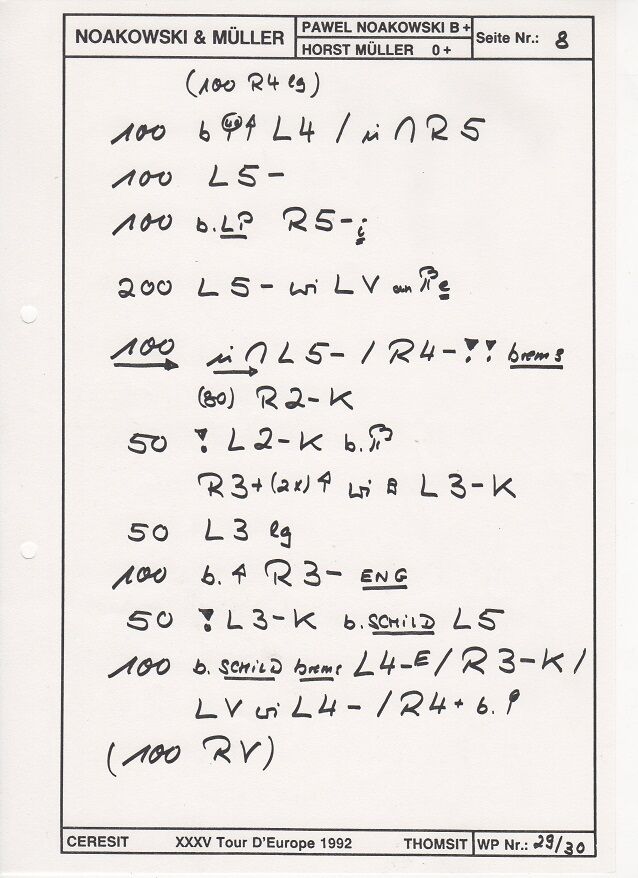 NOAKOWSKI & MÜLLER
PAWEL NOAKOWSKI B+
HORST MÜLLER 0+
Seite Nr.: 8
(100 R4 lg)
100 b ↑ L4 / in ∩ R5
100 L5-
100 b. LP R5-i
200 L5- wi LV am e
100 in ∩ L5- / R4-!! brems
(80) R2-K
50 ! L2-K b.
R3+ (2x) ↑ wi L3-K
50 L3 lg
100 b. ↑ R3- ENG
50 ! L3-K b. SCHILD L5
100 b. SCHILD brems L4-E / R3-K /
LV wi L4- / R4+ b.
(100 RV)
CERESIT XXXV Tour D'Europe 1992 THOMSIT WP Nr.: 29/30